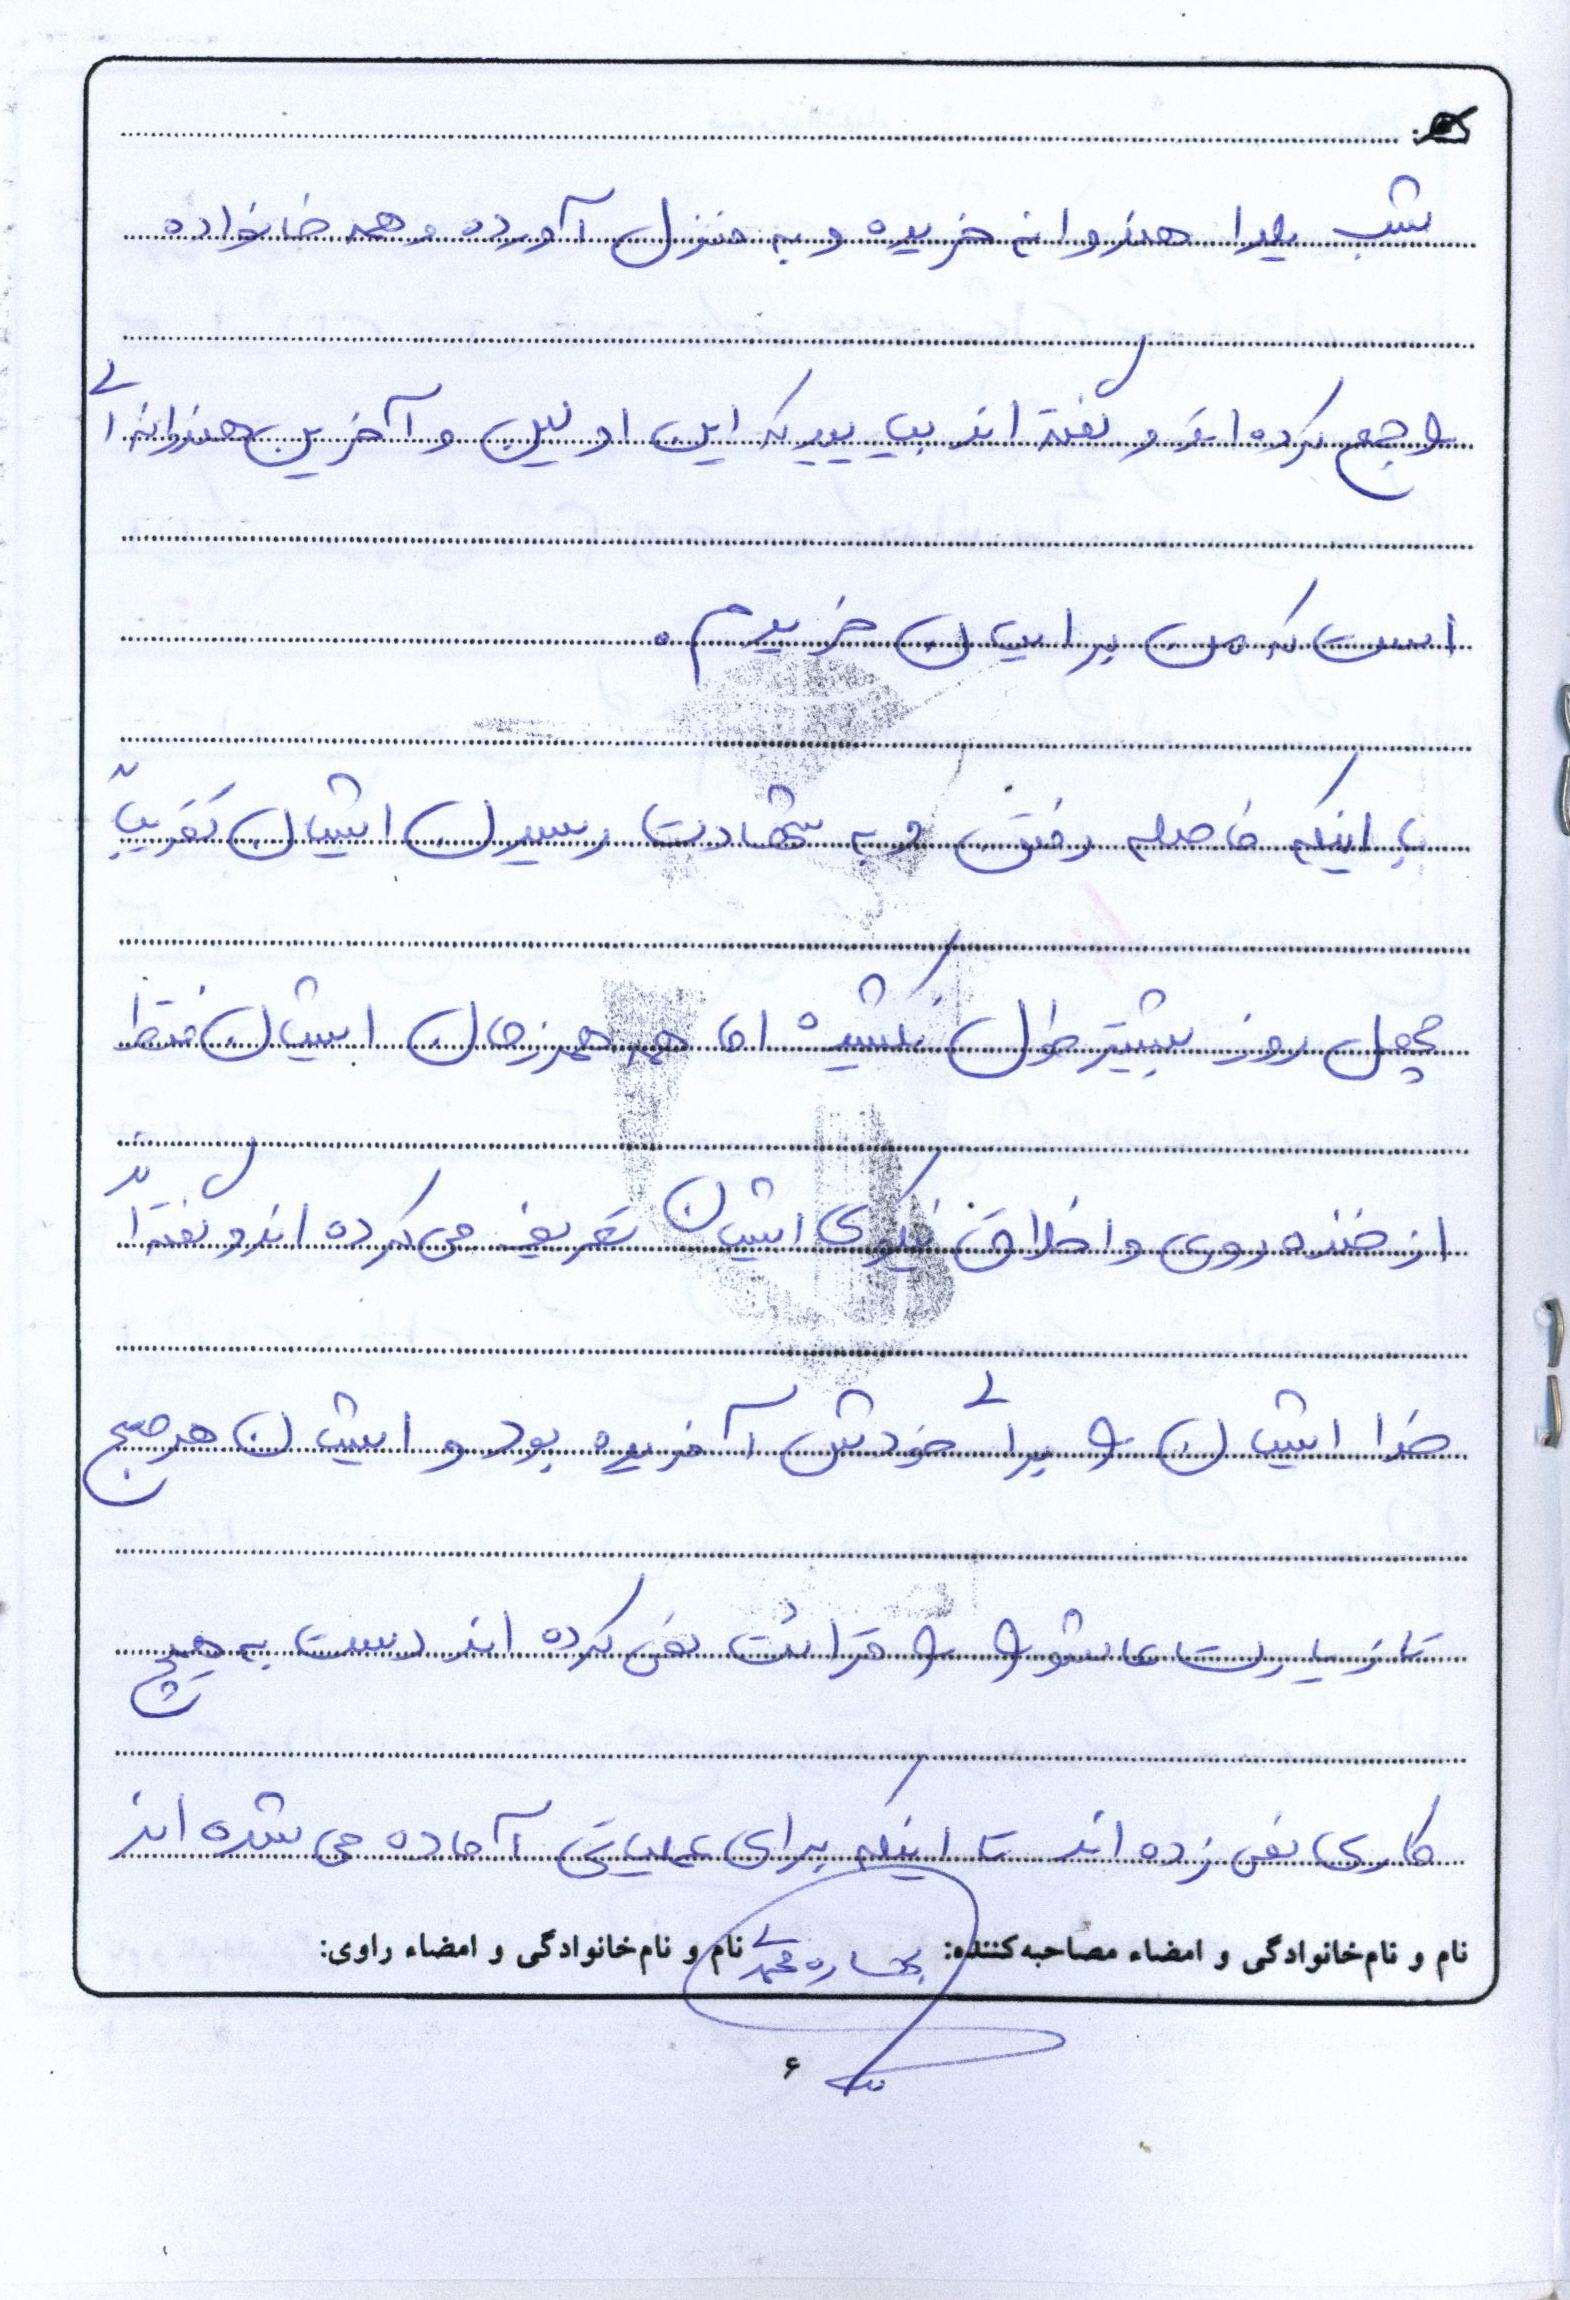 شب یلدا هندوانه خریده و به منزل آورده و همه خانواده
را جمع کرده اند و گفته اند بیایید که این اولین و آخرین هندوانه ای
است که من برایتان خریدم.
با اینکه فاصله رفتن و به شهادت رسیدن ایشان تقریباً
چهل روز بیشتر طول نکشیده اما همه همرزمان ایشان فقط
از خنده روی و اخلاق نیکوی ایشان تعریف می کرده اند و گفته اند
خدا ایشان را برای خودش آفریده بود و ایشان هر صبح
تا زیارت عاشورا را قرائت نمی کرده اند دست به هیچ
کاری نمی زده اند تا اینکه برای عملیاتی آماده می شده اند
نام و نام‌خانوادگی و امضاء مصاحبه‌کننده: محمدی نام و نام‌خانوادگی و امضاء راوی:
۶